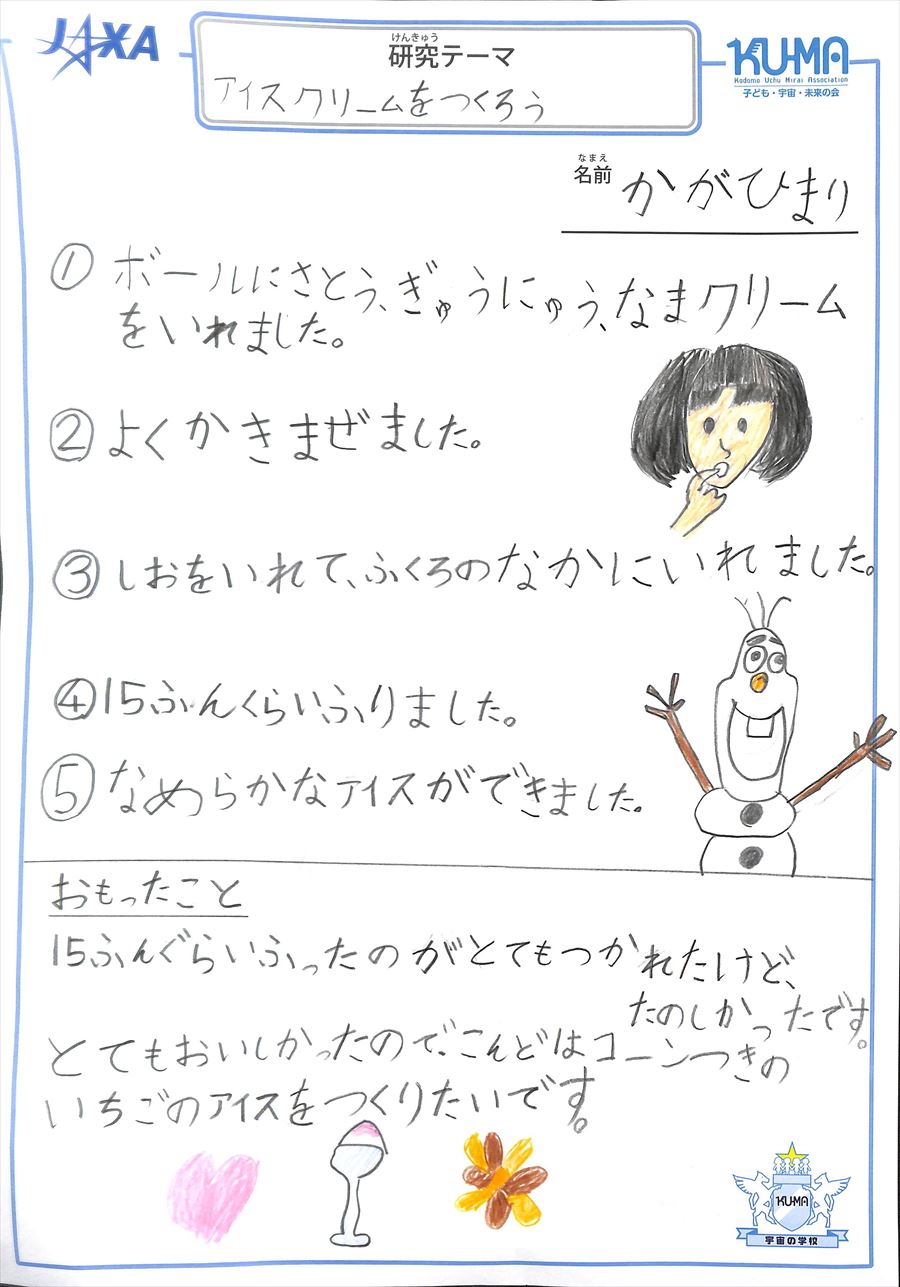 JAXA
けんきゅう
研究テーマ
アイスクリームをつくろう
KUMA
Kodomo Uchu Mirai Association
子ども・宇宙・未来の会
なまえ
名前 かがひまり
① ボールにさとう、ぎゅうにゅう、なまクリーム
をいれました。
② よくかきまぜました。
③ しおをいれて、ふくろのなかにいれました。
④ 15ふんくらいふりました。
⑤ なめらかなアイスができました。
おもったこと
15ふんぐらいふったのがとてもつかれたけど、
たのしかったです。
とてもおいしかったので、こんどはコーンつきの
いちごのアイスをつくりたいです。
KUMA
宇宙の学校